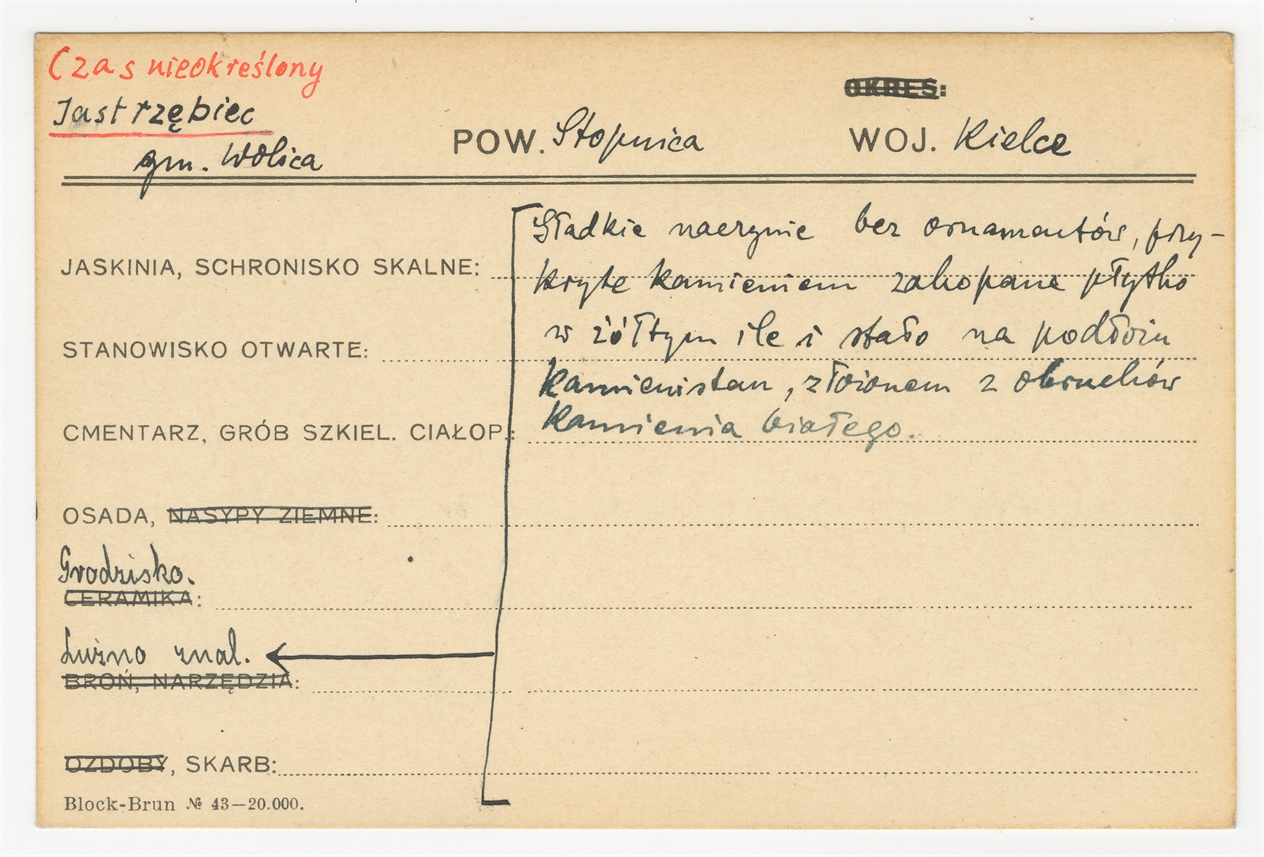 Czas nieokreślony
OKRES:
Jastrzębiec
POW. Stopnica WOJ. Kielce
gm. Wolica
Gładkie naczynie bez ornamentów, przy-
JASKINIA, SCHRONISKO SKALNE:
kryte kamieniem zakopane płytko
w żółtym ile i stało na podłożu
STANOWISKO OTWARTE:
kamienistem, złożonem z okruchów
CMENTARZ, GRÓB SZKIEL. CIAŁOP.:
kamienia białego.
OSADA, NASYPY ZIEMNE:
Grodzisko.
CERAMIKA:
Luźno znal.
BROŃ, NARZĘDZIA:
OZDOBY, SKARB:
Block-Brun № 43—20.000.